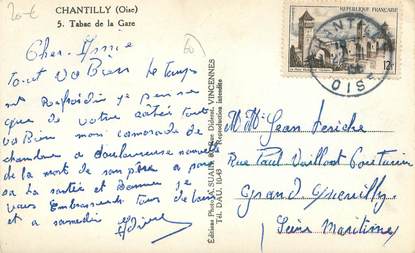 20 €
CHANTILLY (Oise)
5. Tabac de la Gare
60
RÉPUBLIQUE FRANÇAISE
CHANTILLY
OISE
12F
Cher Amie
tout va Bien le temps
est Refroidi je pense
que de votre côté tout
va Bien mon camarade de
chambre a douloureuse nouvelle
de la mort de son père a pas
sa la soirée et Bonne je
vous Embrassent tous de loin
et a samedi
Éditions Photo J. SUAIR, Dédouel, VINCENNES
Tél. DAU. 10-43 Reproduction interdite
M. Mme Jean
Rue Paul Vaillant Couturier
Grand Quevilly
Seine Maritime